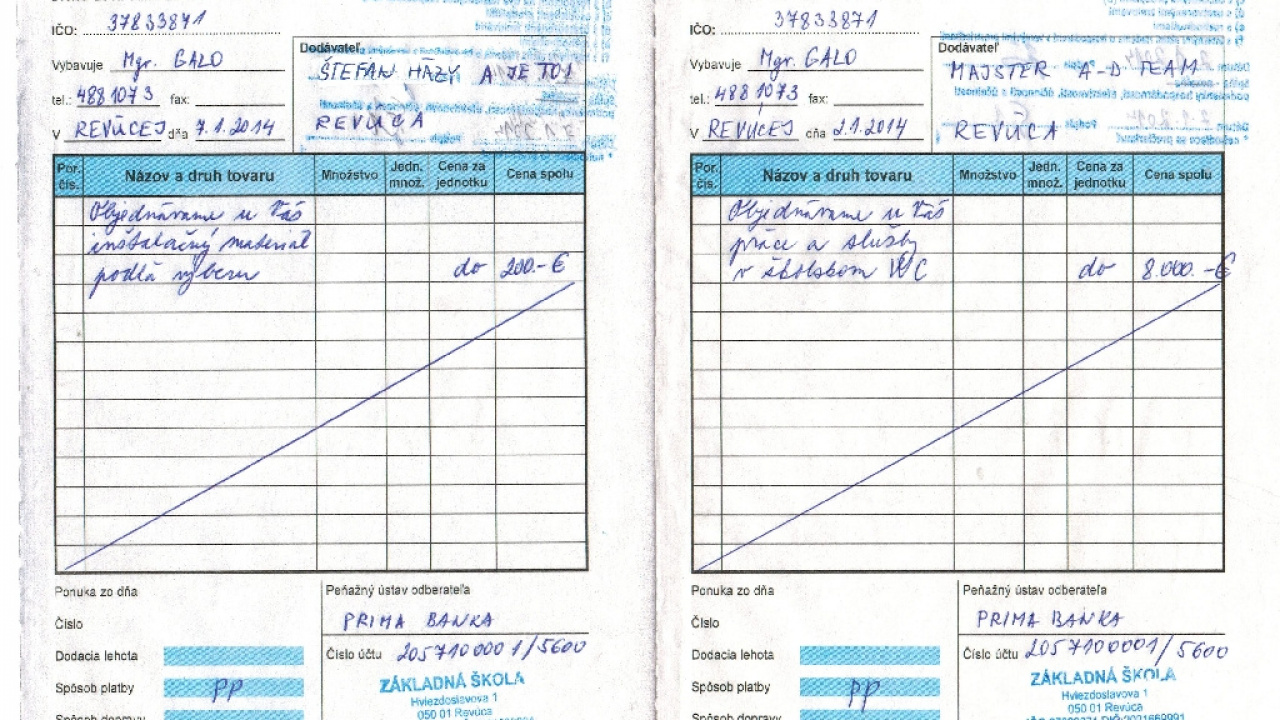 IČO: 37833871
Vybavuje Mgr. GALO
tel.: 4881073 fax:
V REVÚCEJ dňa 7.1.2014
Dodávateľ
ŠTEFAN HÁZY A JE TO1
REVÚCA
Por. čís. Názov a druh tovaru Množstvo Jedn. množ. Cena za jednotku Cena spolu
Objednávame u Vás
inštalačný materiál
podľa výberu do 200.-€
Ponuka zo dňa
Číslo
Dodacia lehota
Spôsob platby PP
Spôsob dopravy
Peňažný ústav odberateľa
PRIMA BANKA
Číslo účtu 2057100001/5600
ZÁKLADNÁ ŠKOLA
Hviezdoslavova 1
050 01 Revúca
IČO: 37833871
Vybavuje Mgr. GALO
tel.: 4881073 fax:
V REVÚCEJ dňa 2.1.2014
Dodávateľ
MAJSTER A-D TEAM
REVÚCA
Por. čís. Názov a druh tovaru Množstvo Jedn. množ. Cena za jednotku Cena spolu
Objednávame u Vás
práce a služby
v školskom WC do 8.000.-€
Ponuka zo dňa
Číslo
Dodacia lehota
Spôsob platby PP
Spôsob dopravy
Peňažný ústav odberateľa
PRIMA BANKA
Číslo účtu 2057100001/5600
ZÁKLADNÁ ŠKOLA
Hviezdoslavova 1
050 01 Revúca